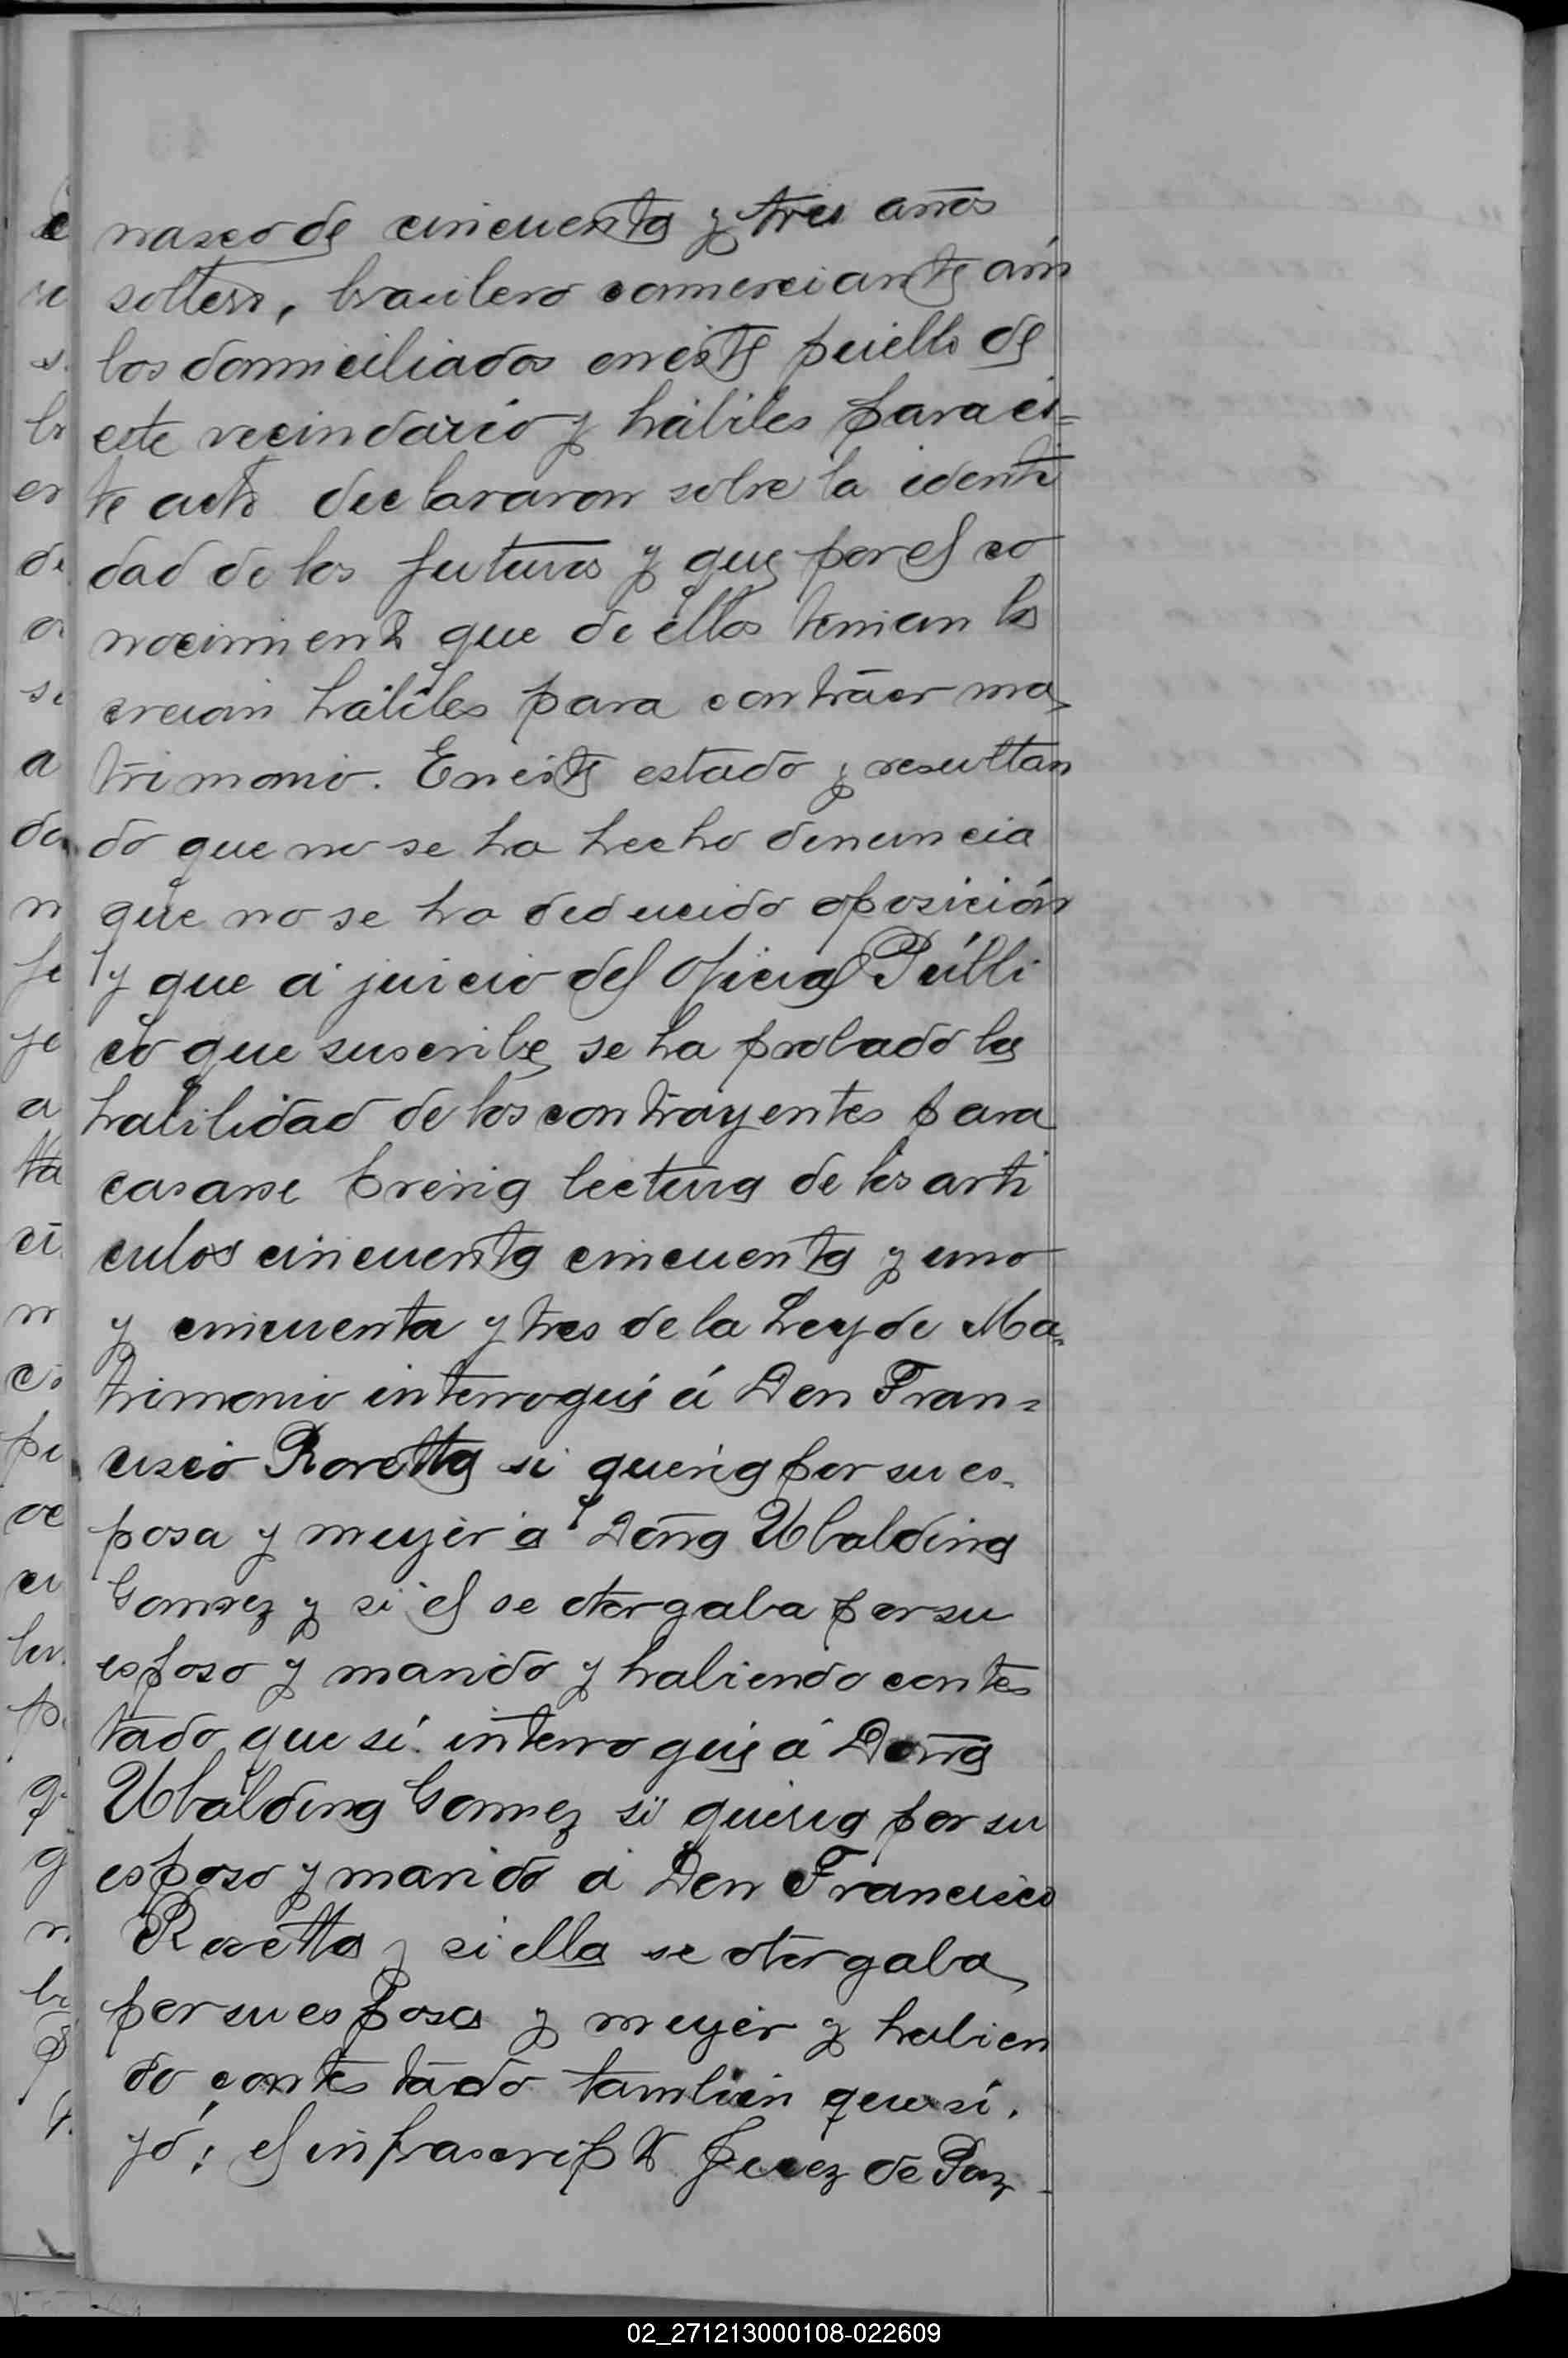 nasco de cincuenta y tres años
soltero, brasilero comerciante am
los domiciliados en este pueblo de
este vecindario y hábiles para es=
te acto declararon sobre la identi
dad de los futuros y que por el co
nocimiento que de ellos tenian los
creian hábiles para contráer ma
trimonio. En este estado y resultan
do que no se ha hecho denuncia
que no se ha deducido oposición
y que á juicio del Oficial Públi
co que suscribe, se ha probado la
habilidad de los contrayentes para
casarse previa lectura de los arti
culos cincuenta cincuenta y uno
y cincuenta y tres de la Ley de Ma-
trimonio interrogué á Don Fran=
cisco Roretta si queria por su es-
posa y mujer a Doña Ubaldina
Gomez y si él se otorgaba por su
esposo y marido y habiendo contes
tado que sí interrogué á Doña
Ubaldina Gomez si queria por su
esposo y marido á Don Francisco
Roretta y si ella se otorgaba
por su esposa y mujer y habien
do contestado tambien que sí.
yó; el infrascripto Juez de Paz
02_271213000108-022609